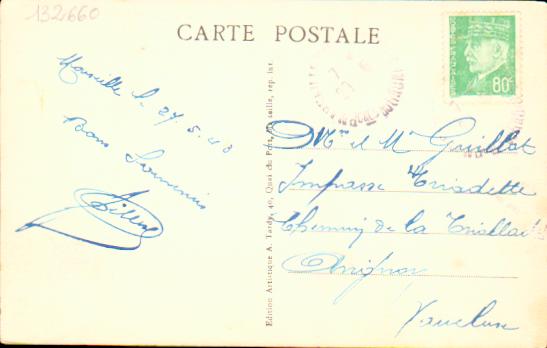 132660
CARTE POSTALE
80c
Marseille le 27.5.43
Bons Souvenirs
Mme et Mr Guillot
Impasse
Chemin de la
Avignon
Vaucluse
Edition Artistique A. Tardy, 40, Quai du Port, Marseille, rep. int.